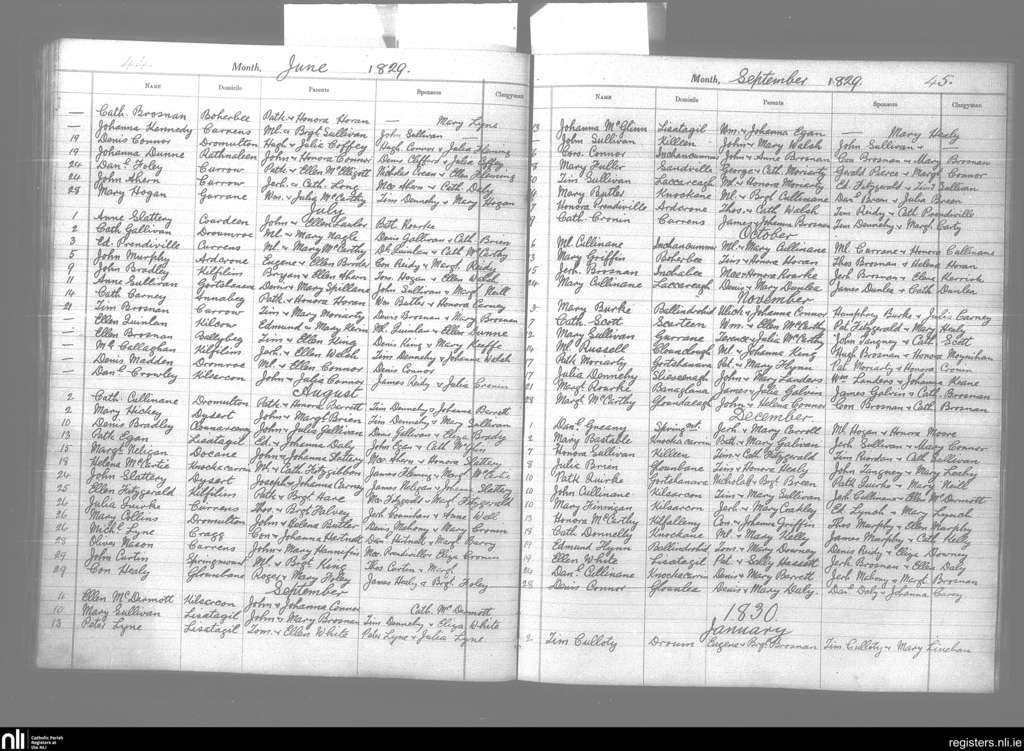 44.
Month, June 1829.
NAME Domicile Parents Sponsors Clergyman
— Cath. Brosnan Boherbee Patk. & Honora Horan — Mary Lyne
— Johanna Kennedy Currens Ml. & Brgt Sullivan John Sullivan —
19 Denis Connor Dromulton Hugh & Julia Coffey Hugh Connor & Julia Fleming
19 Johanna Dunne Rathnaleen John & Honora Connor Denis Clifford & Julia Coffey
24 Danl. Foley Currow Patk. & Ellen McElligott Nicholas & Ellen Fleming
24 John Ahern Currow Jerh. & Cath. Long Mce Ahern & Cath. Daly
28 Mary Hogan Garrane Wm. & Julia McCarthy Tim Dennehy & Mary Hogan
July
1 Anne Slattery Coardeen John & Ellen Lawlor Batt Rourke
2 Cath. Gallivan Droumroe Ml. & Mary Nagle Denis Gallivan & Cath. Brien
3 Ed. Prendiville Currens Ml. & Mary McCarthy Dl. Quinlan & Cath. McCarthy
5 John Murphy Ardcrone Eugene & Ellen Con Reidy & Margt. Reidy
9 John Bradley Kilfilim Bryan & Ellen Ahern Tom. Hogan & Ellen Walsh
11 Anne Sullivan Gortshanera Denis & Mary Spillane John Sullivan & Margt. Neill
14 Cath. Carney Annabeg Patk. & Honora Horan Wm Butler & Honora Carney
21 Tim Brosnan Currow Tim & Mary Moriarty Denis Brosnan & Mary Brosnan
— Ellen Quinlan Kilcow Edmund & Mary Kerin Ml. Quinlan & Ellen Dunne
— Ellen Brosnan Ballybeg Tim & Ellen King Denis King & Mary Keeffe
— Ml. Callaghan Kilfilim Jerh. & Ellen Walsh Tim Dennehy & Johanna Welsh
— Denis Madden Dromroe Ml. & Ellen Connor Denis Connor
— Danl. Crowley Kilsarcon John & Julia Connor James Reidy & Julia Cronin
August
2 Cath. Cullinane Dromulton Patk. & Honora Barrett Tim Dennehy & Johanna Barrett
2 Mary Hickey Dysert John & Margt. Brien Tim Dennehy & Mary Sullivan
10 Denis Bradley John & Julia Sullivan Denis Sullivan & Eliza Brady
13 Patk Egan Lisatagil Ed. & Johanna Daly John Egan & Cath.
15 Margt. Neligan Docane John & Johanna Slattery Mce Ahern & Honora Slattery
18 Helena McCartie Knockacurrin Wm. & Cath. Fitzgibbon James Fleming & Margt.
24 John Slattery Dysert Joseph & Johanna Carney James Neligan & Johanna Slattery
25 Ellen Fitzgerald Kilfilim Patk & Brgt. Mce Fitzgerald & Margt. Fitzgerald
26 Julia Quirke Currens Thos. & Brgt. Falvey Jerh. & Anne
26 Mary Collins Dromulton John & Helena Butler Denis Mahony & Mary Cronin
26 Michl. Lyne Cragg Con & Johanna Hartnett Danl. Hartnett & Margt. Barry
28 Oliver Mason Currens John & Mary Hannifin Mce Prendiville & Eliza Cronin
29 John Curtin Springmount Ml. & Brgt. King Thos Curtin & Margt.
29 Con Healy Glounbane Roger & Mary Foley James Healy & Brgt. Foley
September
11 Ellen McDermott Kilsarcon John & Johanna Connor Cath. McDermott
10 Mary Sullivan Lisatagil John & Mary Brosnan Tim Dennehy & Eliza White
13 Peter Lyne Lisatagil Tom. & Ellen White Peter Lyne & Julia Lyne
Month, September 1829. 45.
NAME Domicile Parents Sponsors Clergyman
13 Johanna McGlinn Lisatagil Wm. & Johanna Egan — Mary Healy
— John Sullivan Killeen John & Mary Walsh John Sullivan &
Connor Inchancummer John & Anne Brosnan Con Brosnan & Mary Brosnan
Mary Fuller Sandville George & Cath. Moriarty Gerald Pierce & Margt. Connor
Tim Sullivan Laccareagh Ml. & Honora Moriarty Ed. Fitzgerald & Tim Sullivan
Mary Butler Knockane Ml. & Brgt Cullinane Danl. Breen & Julia Breen
Honora Prendiville Ardcrone Thos. & Cath Walsh Tim Reidy & Cath Prendiville
Cath. Cronin Currens James & Johanna Brosnan Tim Dennehy & Margt. Carty
October
6 Ml. Cullinane Inchancummer Ml. & Mary Cullinane Ml. Currane & Honora Cullinane
Mary Griffin Boherbee Tim & Honora Horan Thos Brosnan & Helena Horan
15 Jerh. Brosnan Inchalee Mce & Honora Rourke Jerh Brosnan & Elena
24 Mary Cullinane Laccareagh Denis & Mary Quinlan James Quinlan & Cath Quinlan
November
3 Mary Burke Ballindrohid Ulick & Johanna Connor Humphry Burke & Julia Carney
Cath. Scott Scarteen Wm. & Ellen McCarthy Pat Fitzgerald & Mary Healy
Mary Sullivan Garrane Terence & Julia McCarthy John Tangney & Cath Scott
14 Ml Russell Glounclough Ml. & Johanna King Hugh Brosnan & Honora Moynihan
Patk Moriarty Gortshanavra Pat. & Mary Flynn Pat Moriarty & Honora Cronin
17 Julia Dennehy John & Mary Landers Wm Landers & Johanna Keane
21 Margt. Rourke James & Julia Galvin James Galvin & Cath. Brosnan
28 Margt. McCarthy Gloundaeagh John & Helena Connor Con Brosnan & Cath. Brosnan
December
1 Danl. Greany Springmt. Jerh. & Mary Carroll Ml. Hogan & Honora Moore
2 Mary Bastable Knockacurrin Batt. & Mary Galivan Jerh Sullivan & Mary Connor
7 Honora Sullivan Killeen Tim & Cath. Fitzgerald Tim Riordan & Cath Sullivan
8 Julia Brien Glounbane Tim & Honora Healy John Tangney & Mary Leahy
10 Patk Quirke Gortshanavra Nicholas & Brgt. Breen Patk Quirke & Mary Neill
10 John Cullinane Kilsarcon Tim & Mary Sullivan Jerh Cullinane & Ellen McDermott
10 Mary Finnigan Kilsarcon Jerh. & Mary Coakley Ed Lynch & Mary Lynch
13 Honora McCarthy Kilfalleny Con. & Johanna Griffin Thos Murphy & Ellen Murphy
18 Cath. Donnelly Knockane Ml. & Mary Kelly James Murphy & Cath. Kelly
19 Edmund Flynn Ballindrohid Tom. & Mary Downey Denis Reidy & Eliza Downey
19 Ellen White Lisatagil Pat. & Sally Hassett Jerh Brosnan & Ellen Daly
24 Danl. Cullinane Knockacurrin Denis & Mary Barrett Jerh Mahony & Margt Brosnan
28 Denis Connor Glounlea Denis & Mary Daly. Danl Daly & Johanna Carey
1830
January
2. Tim Culloty Droum Eugene & Brgt. Brosnan Tim Culloty & Mary Linehan
nli Catholic Parish Registers at the NLI
registers.nli.ie